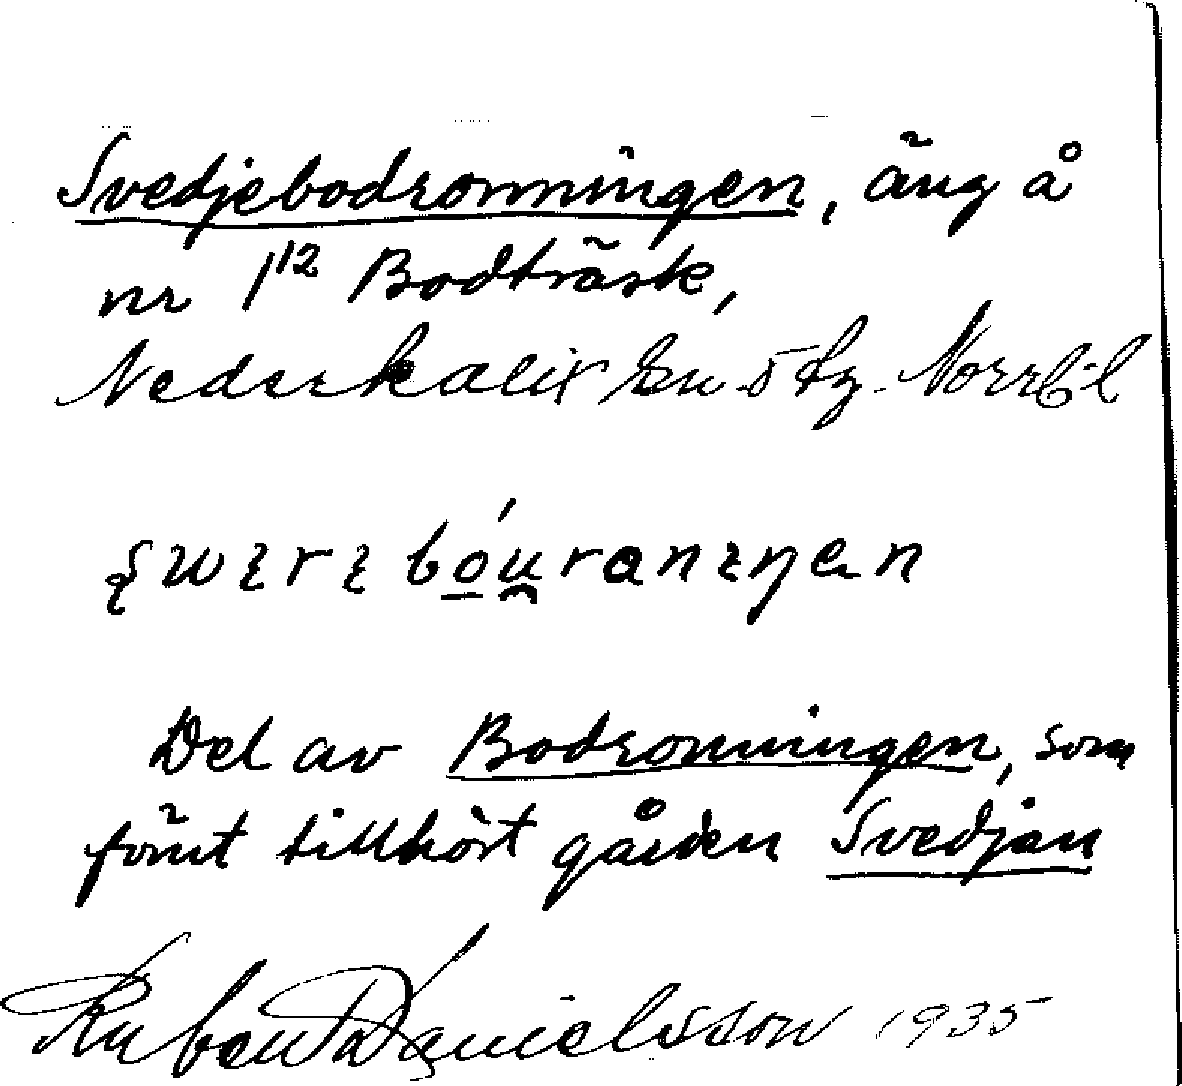 Svedjebodronningen, äng å
nr 1¹² Bodträsk,
Nederkalix sn o tg. Norrb. l
Del av Bodronningen, som
förut tillhört gården Svedjan
Ruben Danielsson 1935